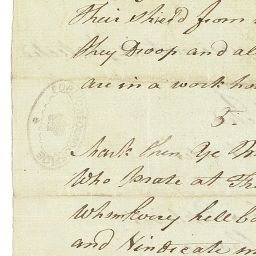 Their Shield from
they Droop and al
are in a work ho
5.
Mark then Ye
Who prate at Th
Whimsovry hell bo
and Vindicate m